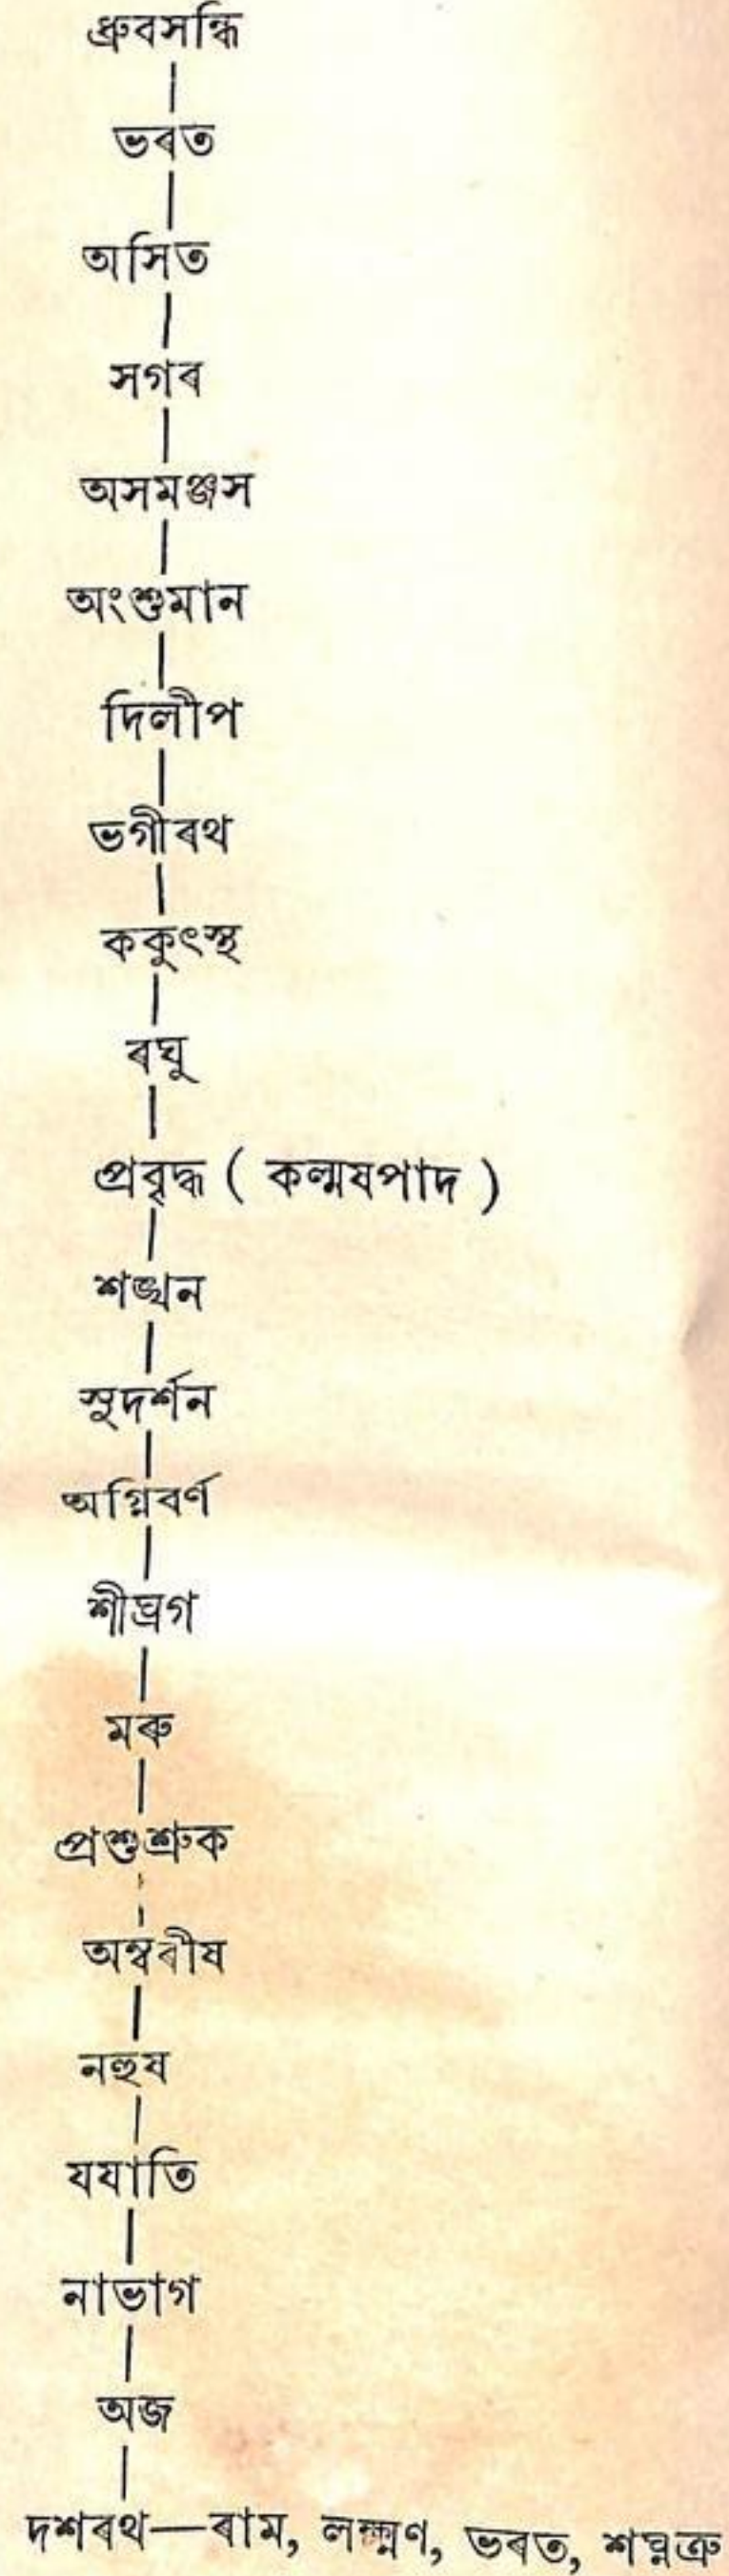 ধ্ৰুবসন্ধি
ভৰত
অসিত
সগৰ
অসমঞ্জস
অংশুমান
দিলীপ
ভগীৰথ
ককুৎস্থ
ৰঘু
প্ৰবৃদ্ধ ( কল্মষপাদ )
শঙ্খন
সুদৰ্শন
অগ্নিবৰ্ণ
শীঘ্ৰগ
মৰু
প্ৰশুশ্ৰুক
অম্বৰীষ
নহুষ
যযাতি
নাভাগ
অজ
দশৰথ—ৰাম, লক্ষ্মণ, ভৰত, শত্ৰুঘ্ন